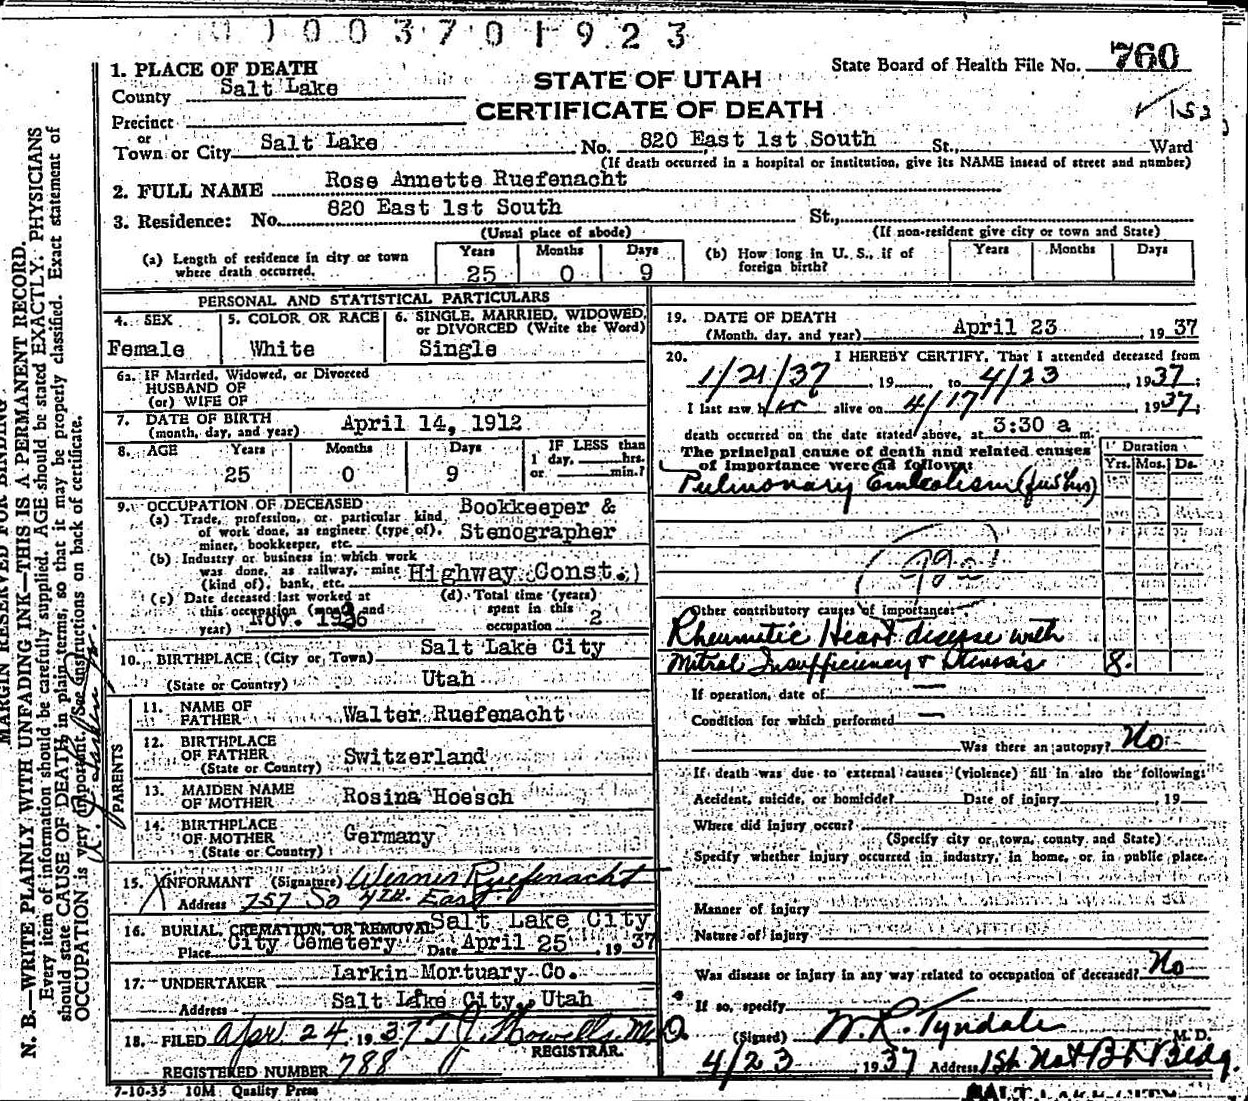 01003701923
State Board of Health File No. 760
STATE OF UTAH
CERTIFICATE OF DEATH
1. PLACE OF DEATH
County Salt Lake
Precinct
or
Town or City Salt Lake No. 820 East 1st South St., Ward
(If death occurred in a hospital or institution, give its NAME insead of street and number)
2. FULL NAME Rose Annette Ruefenacht
3. Residence: No. 820 East 1st South St.,
(Usual place of abode) (If non-resident give city or town and State)
(a) Length of residence in city or town where death occurred. Years 25 Months 0 Days 9
(b) How long in U. S., if of foreign birth? Years Months Days
PERSONAL AND STATISTICAL PARTICULARS
4. SEX Female
5. COLOR OR RACE White
6. SINGLE, MARRIED, WIDOWED, or DIVORCED (Write the Word) Single
6a. IF Married, Widowed, or Divorced
HUSBAND OF
(or) WIFE OF
7. DATE OF BIRTH (month, day, and year) April 14, 1912
8. AGE Years 25 Months 0 Days 9
IF LESS than
1 day, hrs.
or min.?
9. OCCUPATION OF DECEASED
(a) Trade, profession, or particular kind of work done, as engineer (type of), miner, bookkeeper, etc. Bookkeeper & Stenographer
(b) Industry or business in which work was done, as railway, mine (kind of), bank, etc. Highway Const.)
(c) Date deceased last worked at this occupation (month and year) Nov. 1936
(d) Total time (years) spent in this occupation 2
10. BIRTHPLACE (City or Town) Salt Lake City
(State or Country) Utah
PARENTS
11. NAME OF FATHER Walter Ruefenacht
12. BIRTHPLACE OF FATHER (State or Country) Switzerland
13. MAIDEN NAME OF MOTHER Rosina Hoesch
14. BIRTHPLACE OF MOTHER (State or Country) Germany
15. X INFORMANT (Signature) Werner Ruefenacht
Address 757 So 4th East
16. BURIAL, CREMATION, OR REMOVAL Salt Lake City
Place City Cemetery Date April 25, 1937
17. UNDERTAKER Larkin Mortuary Co.
Address Salt Lake City, Utah
18. FILED Apr. 24 1937 T J Howells M.D.
REGISTRAR.
REGISTERED NUMBER 788
7-10-35 10M Quality Press
19. DATE OF DEATH
(Month, day, and year) April 23, 1937
20. I HEREBY CERTIFY, That I attended deceased from
1/21/37, 19 to 4/23, 1937;
I last saw her alive on 4/17, 1937;
death occurred on the date stated above, at 3:30 a m.
The principal cause of death and related causes of importance were as follows: Duration
Yrs. Mos. Ds.
Pulmonary Embolism (few hrs)
Other contributory causes of importance:
Rheumatic Heart disease with
Mitral Insufficiency & Stenosis 8.
If operation, date of —
Condition for which performed —
Was there an autopsy? No
If death was due to external causes (violence) fill in also the following:
Accident, suicide, or homicide? Date of injury, 19
Where did injury occur?
(Specify city or town, county and State)
Specify whether injury occurred in industry, in home, or in public place.
Manner of injury
Nature of injury
Was disease or injury in any way related to occupation of deceased? No
If so, specify
(Signed) W. R. Tyndale M. D.
4/23 1937 Address 1st Nat Bk Bldg.
SALT LAKE CITY
MARGIN RESERVED FOR BINDING
N. B.—WRITE PLAINLY WITH UNFADING INK—THIS IS A PERMANENT RECORD.
Every item of information should be carefully supplied. AGE should be stated EXACTLY. PHYSICIANS
should state CAUSE OF DEATH in plain terms, so that it may be properly classified. Exact statement of
OCCUPATION is very important. (See instructions on back of certificate.